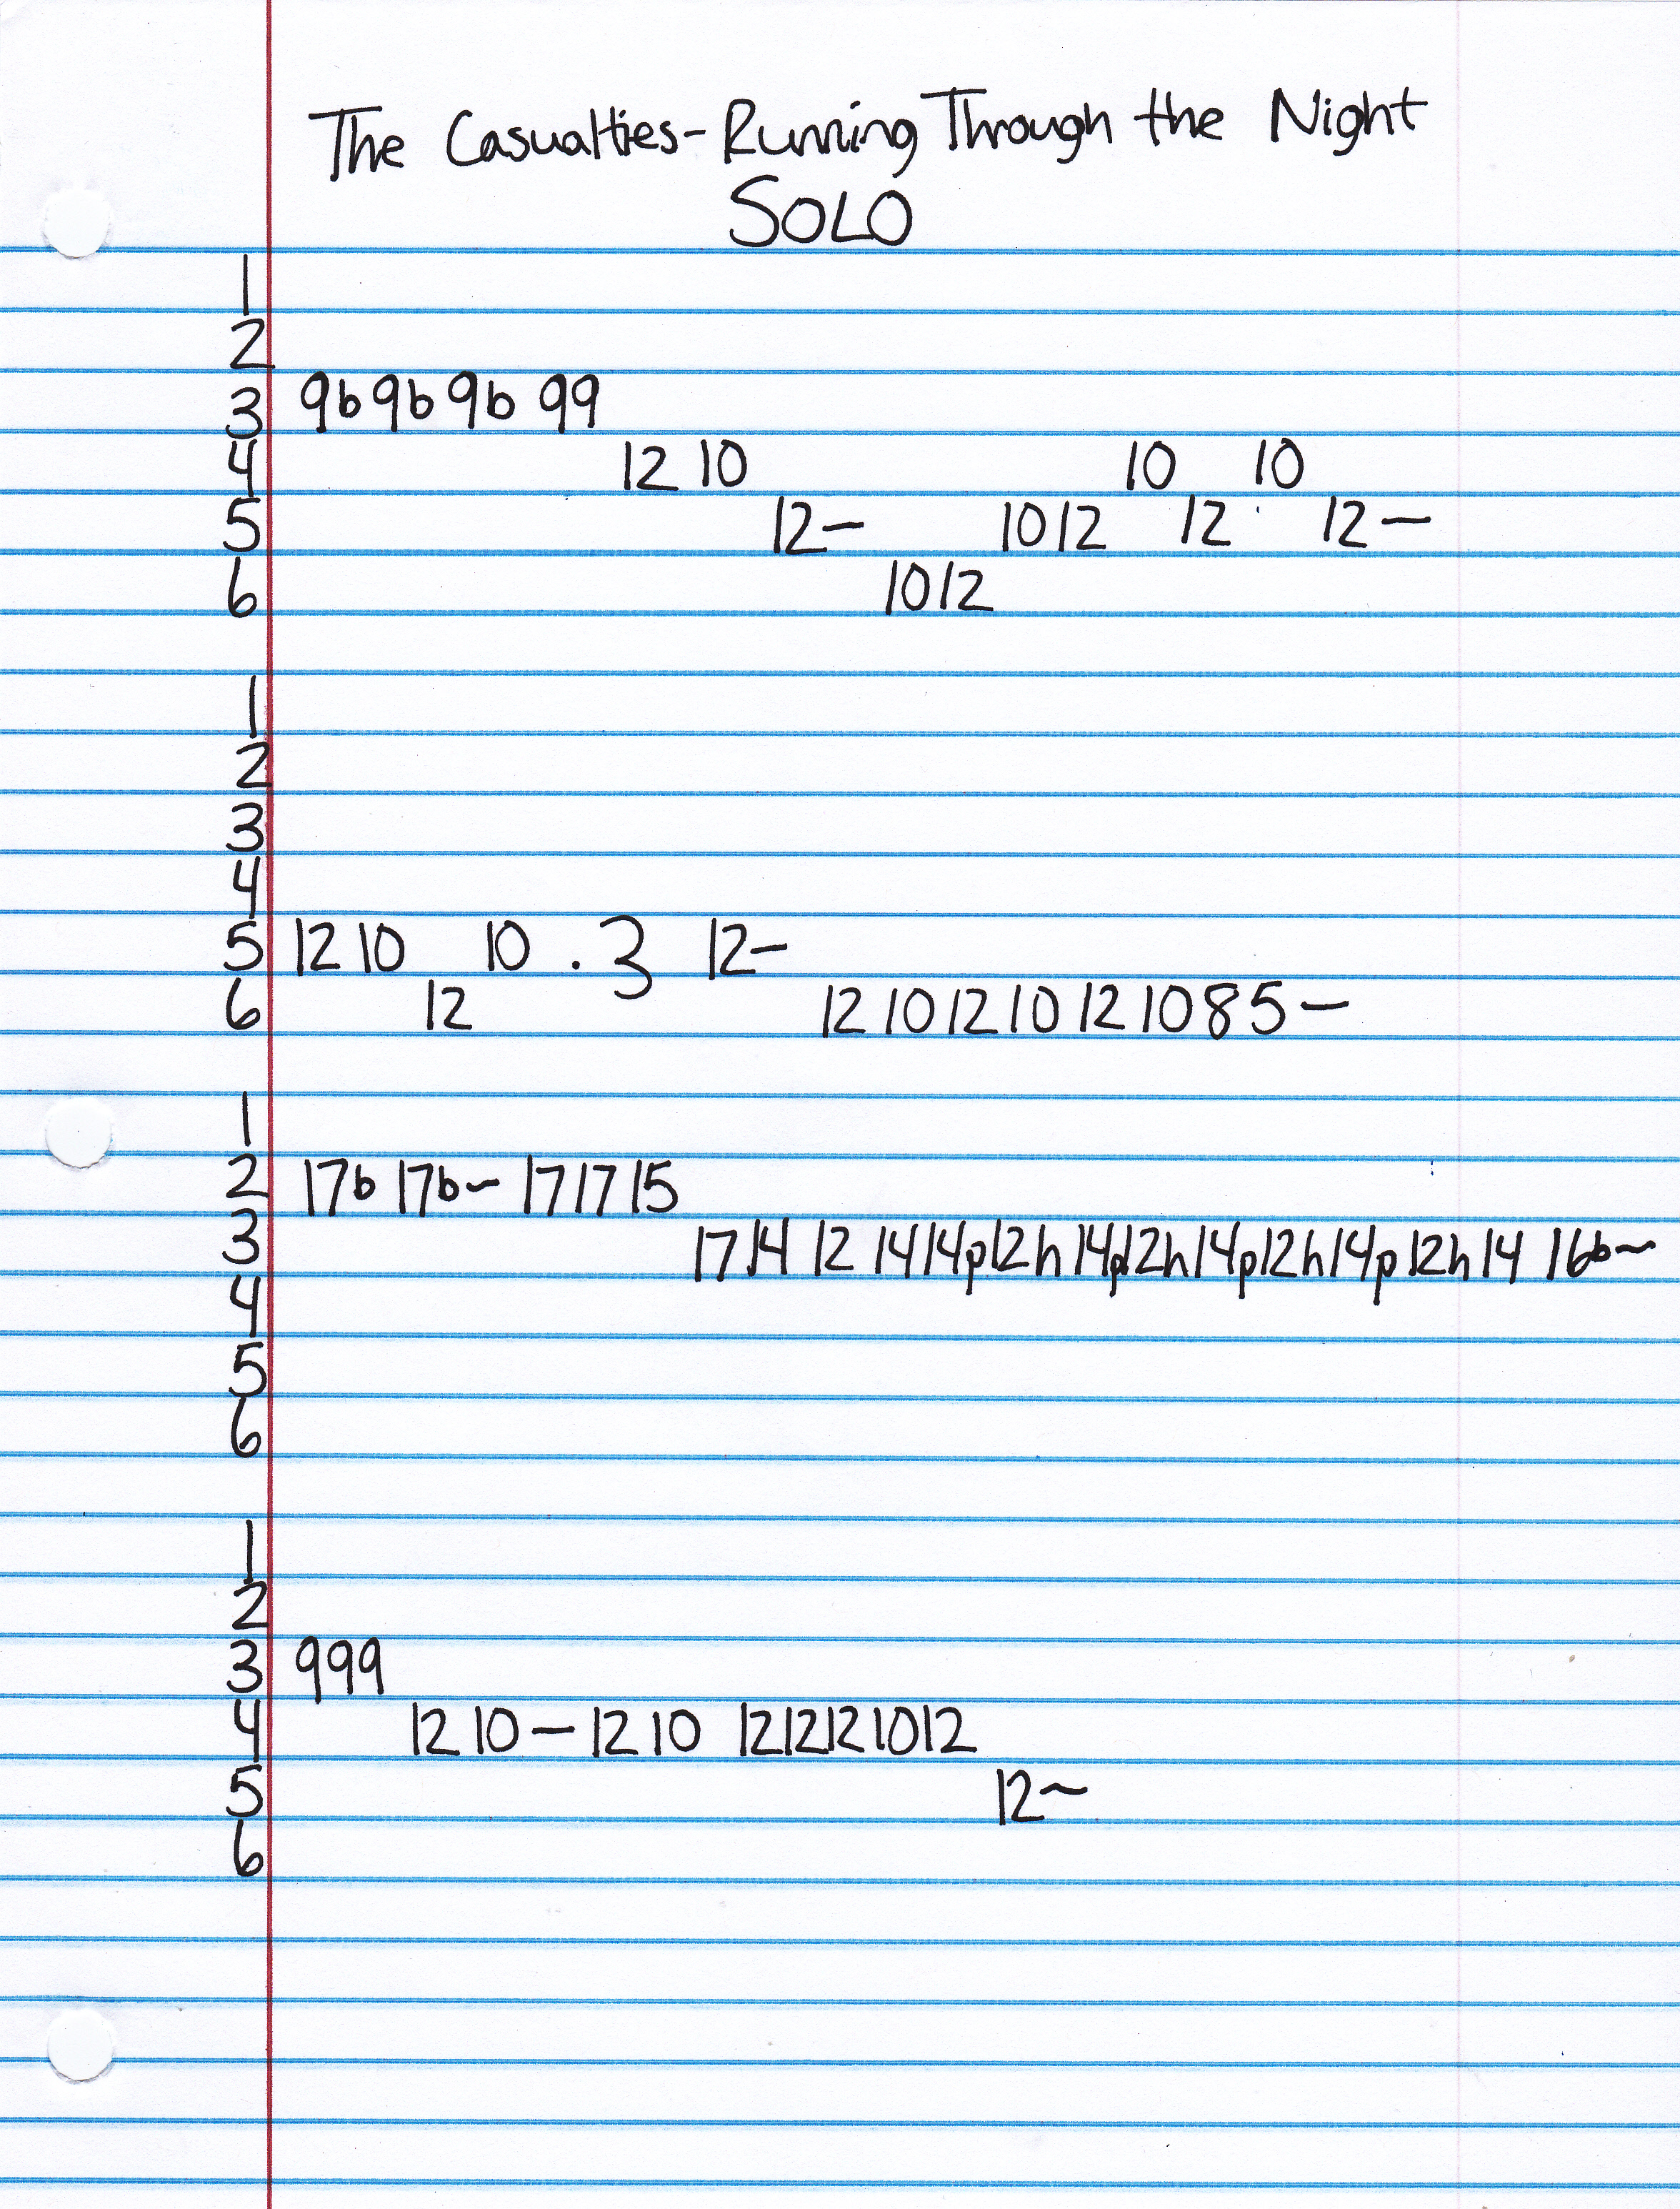 The Casualties - Running Through the Night
SOLO
1
2
3 9b 9b 9b 99
4 12 10 10 10
5 12— 10 12 12 12—
6 10 12
1
2
3
4
5 12 10 10 . 3 12-
6 12 12 10 12 10 12 10 8 5 —
1
2 17b 17b~ 17 17 15
3 17 14 12 14 14p12h14p12h14p12h14p12h14 16b~
4
5
6
1
2
3 999
4 12 10 — 12 10 12 12 12 10 12
5 12~
6